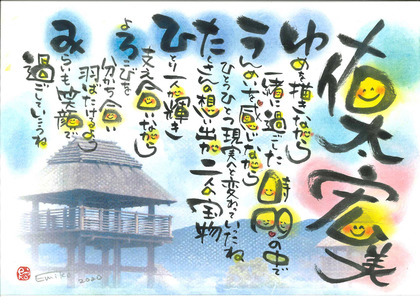 佑太
宏美
ゆめを描きながら
一緒に過ごした時間の中で
うんめいを感じながら
ひとつひとつ現実へと変わっていったね
たくさんの想い出が二人の宝物
ひとり一人が輝き
支え合いながら
よろこびを
分かち合い
羽ばたけるよう
みらいも笑顔で
過ごしていこうね
Emiko